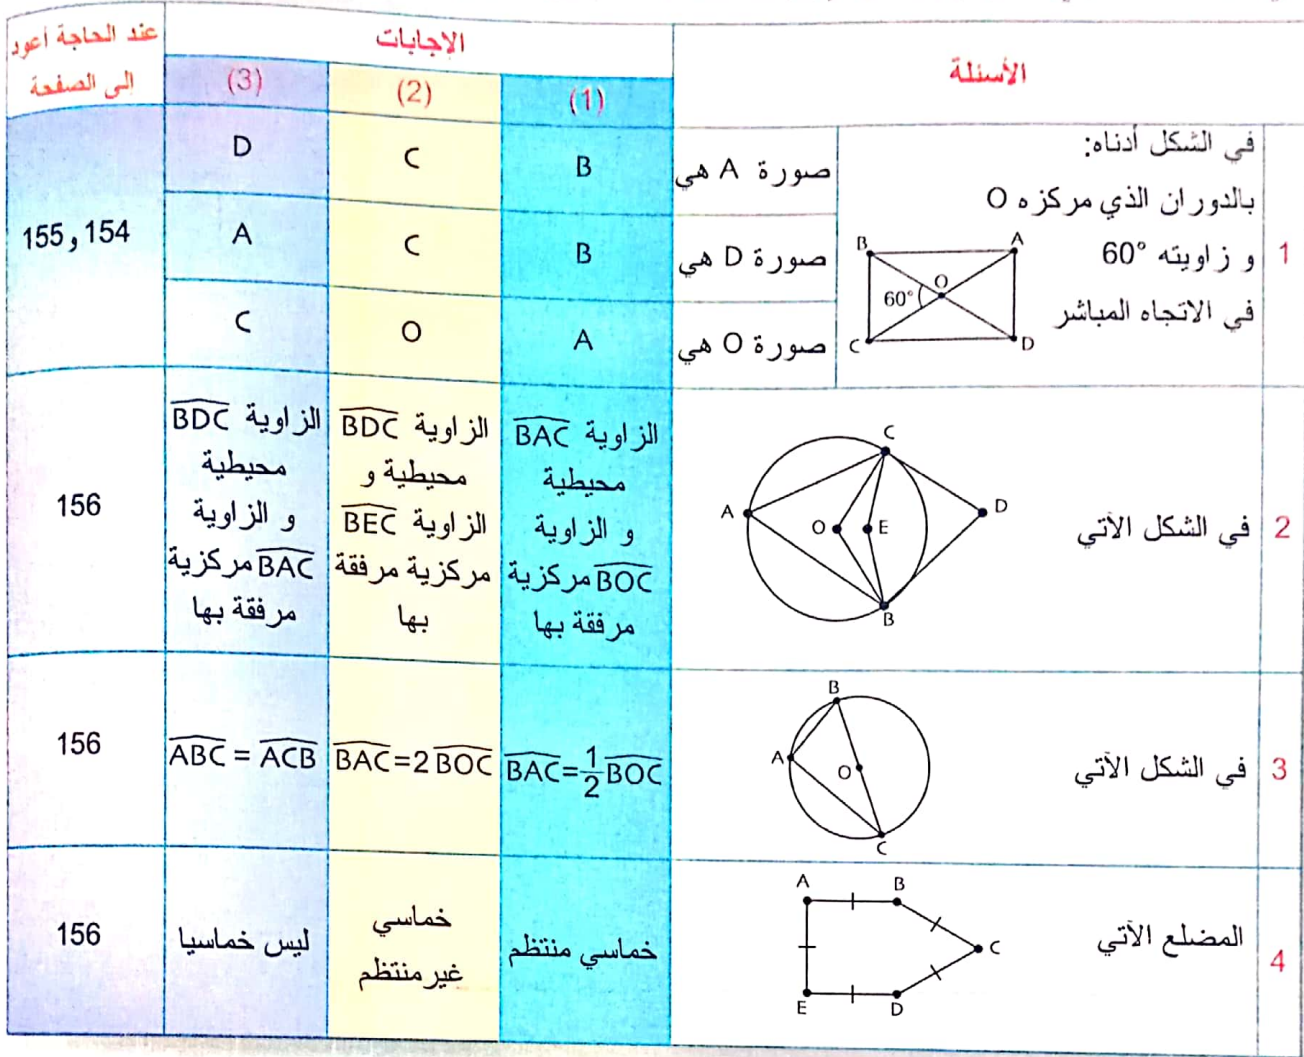 الأسئلة
الإجابات
عند الحاجة أعود
إلى الصفحة
(1)
(2)
(3)
1
في الشكل أدناه:
بالدوران الذي مركزه O
و زاويته 60°
في الاتجاه المباشر
B
A
O
60°
C
D
صورة A هي
B
C
D
صورة D هي
B
C
A
صورة O هي
A
O
C
154 و 155
2
في الشكل الآتي
C
A
O
E
D
B
الزاوية BAC
محيطية
و الزاوية
BOC مركزية
مرفقة بها
الزاوية BDC
محيطية و
الزاوية BEC
مركزية مرفقة
بها
الزاوية BDC
محيطية
و الزاوية
BAC مركزية
مرفقة بها
156
3
في الشكل الآتي
B
A
O
C
BAC=1/2 BOC
BAC=2 BOC
ABC = ACB
156
4
المضلع الآتي
A
B
C
E
D
خماسي منتظم
خماسي
غير منتظم
ليس خماسيا
156